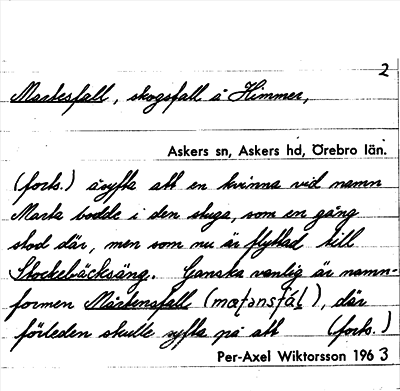 2
Martesfall, skogsfall å Himmer,
Askers sn, Askers hd, Örebro län.
(forts.) åsyfta att en kvinna vid namn
Marta bodde i den stuga, som en gång
stod där, men som nu är flyttad till
Stockebäcksäng. Ganska vanlig är namn-
formen Mårtensfall (), där
förleden skulle syfta på att (forts.)
Per-Axel Wiktorsson 1963